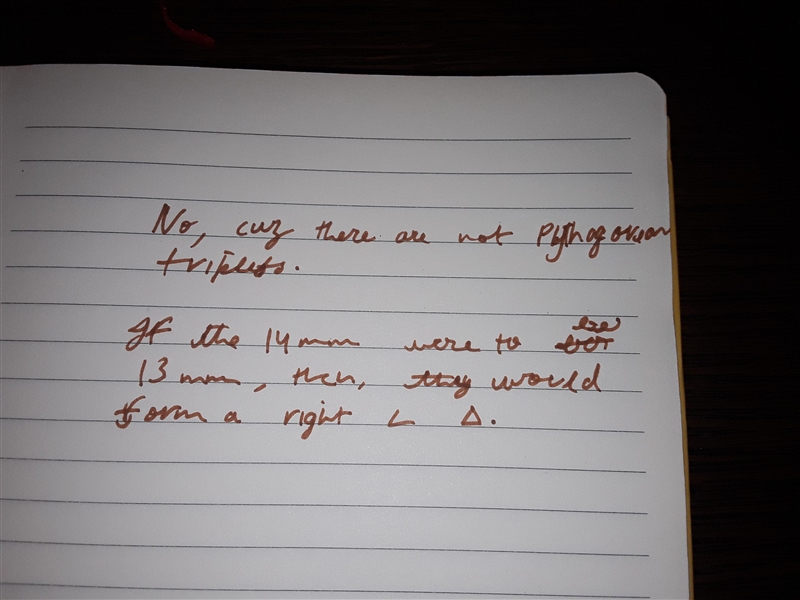 No, cuz there are not Pythagorean
triplets.
If the 14 mm were to be
13 mm, then, they would
form a right ∠ Δ.